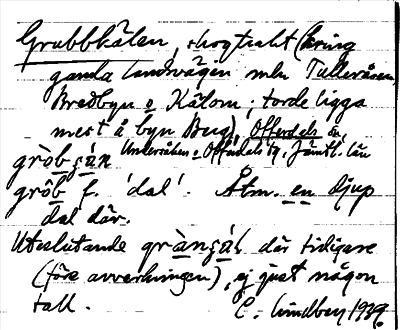 Grubbkälen, skogtrakt (kring
gamla landsvägen mln Tulleråsen,
Bredbyn o Kälom; torde ligga
mest å byn Berg), Offerdals sn,
Undersåkers o Offerdals tg. Jämtl. län
gròb
grôb f. 'dal'. Åtm. en djup
dal där.
Uteslutande där tidigare
(före avverkningen), ej just någon
tall. C. Lindberg 1939.